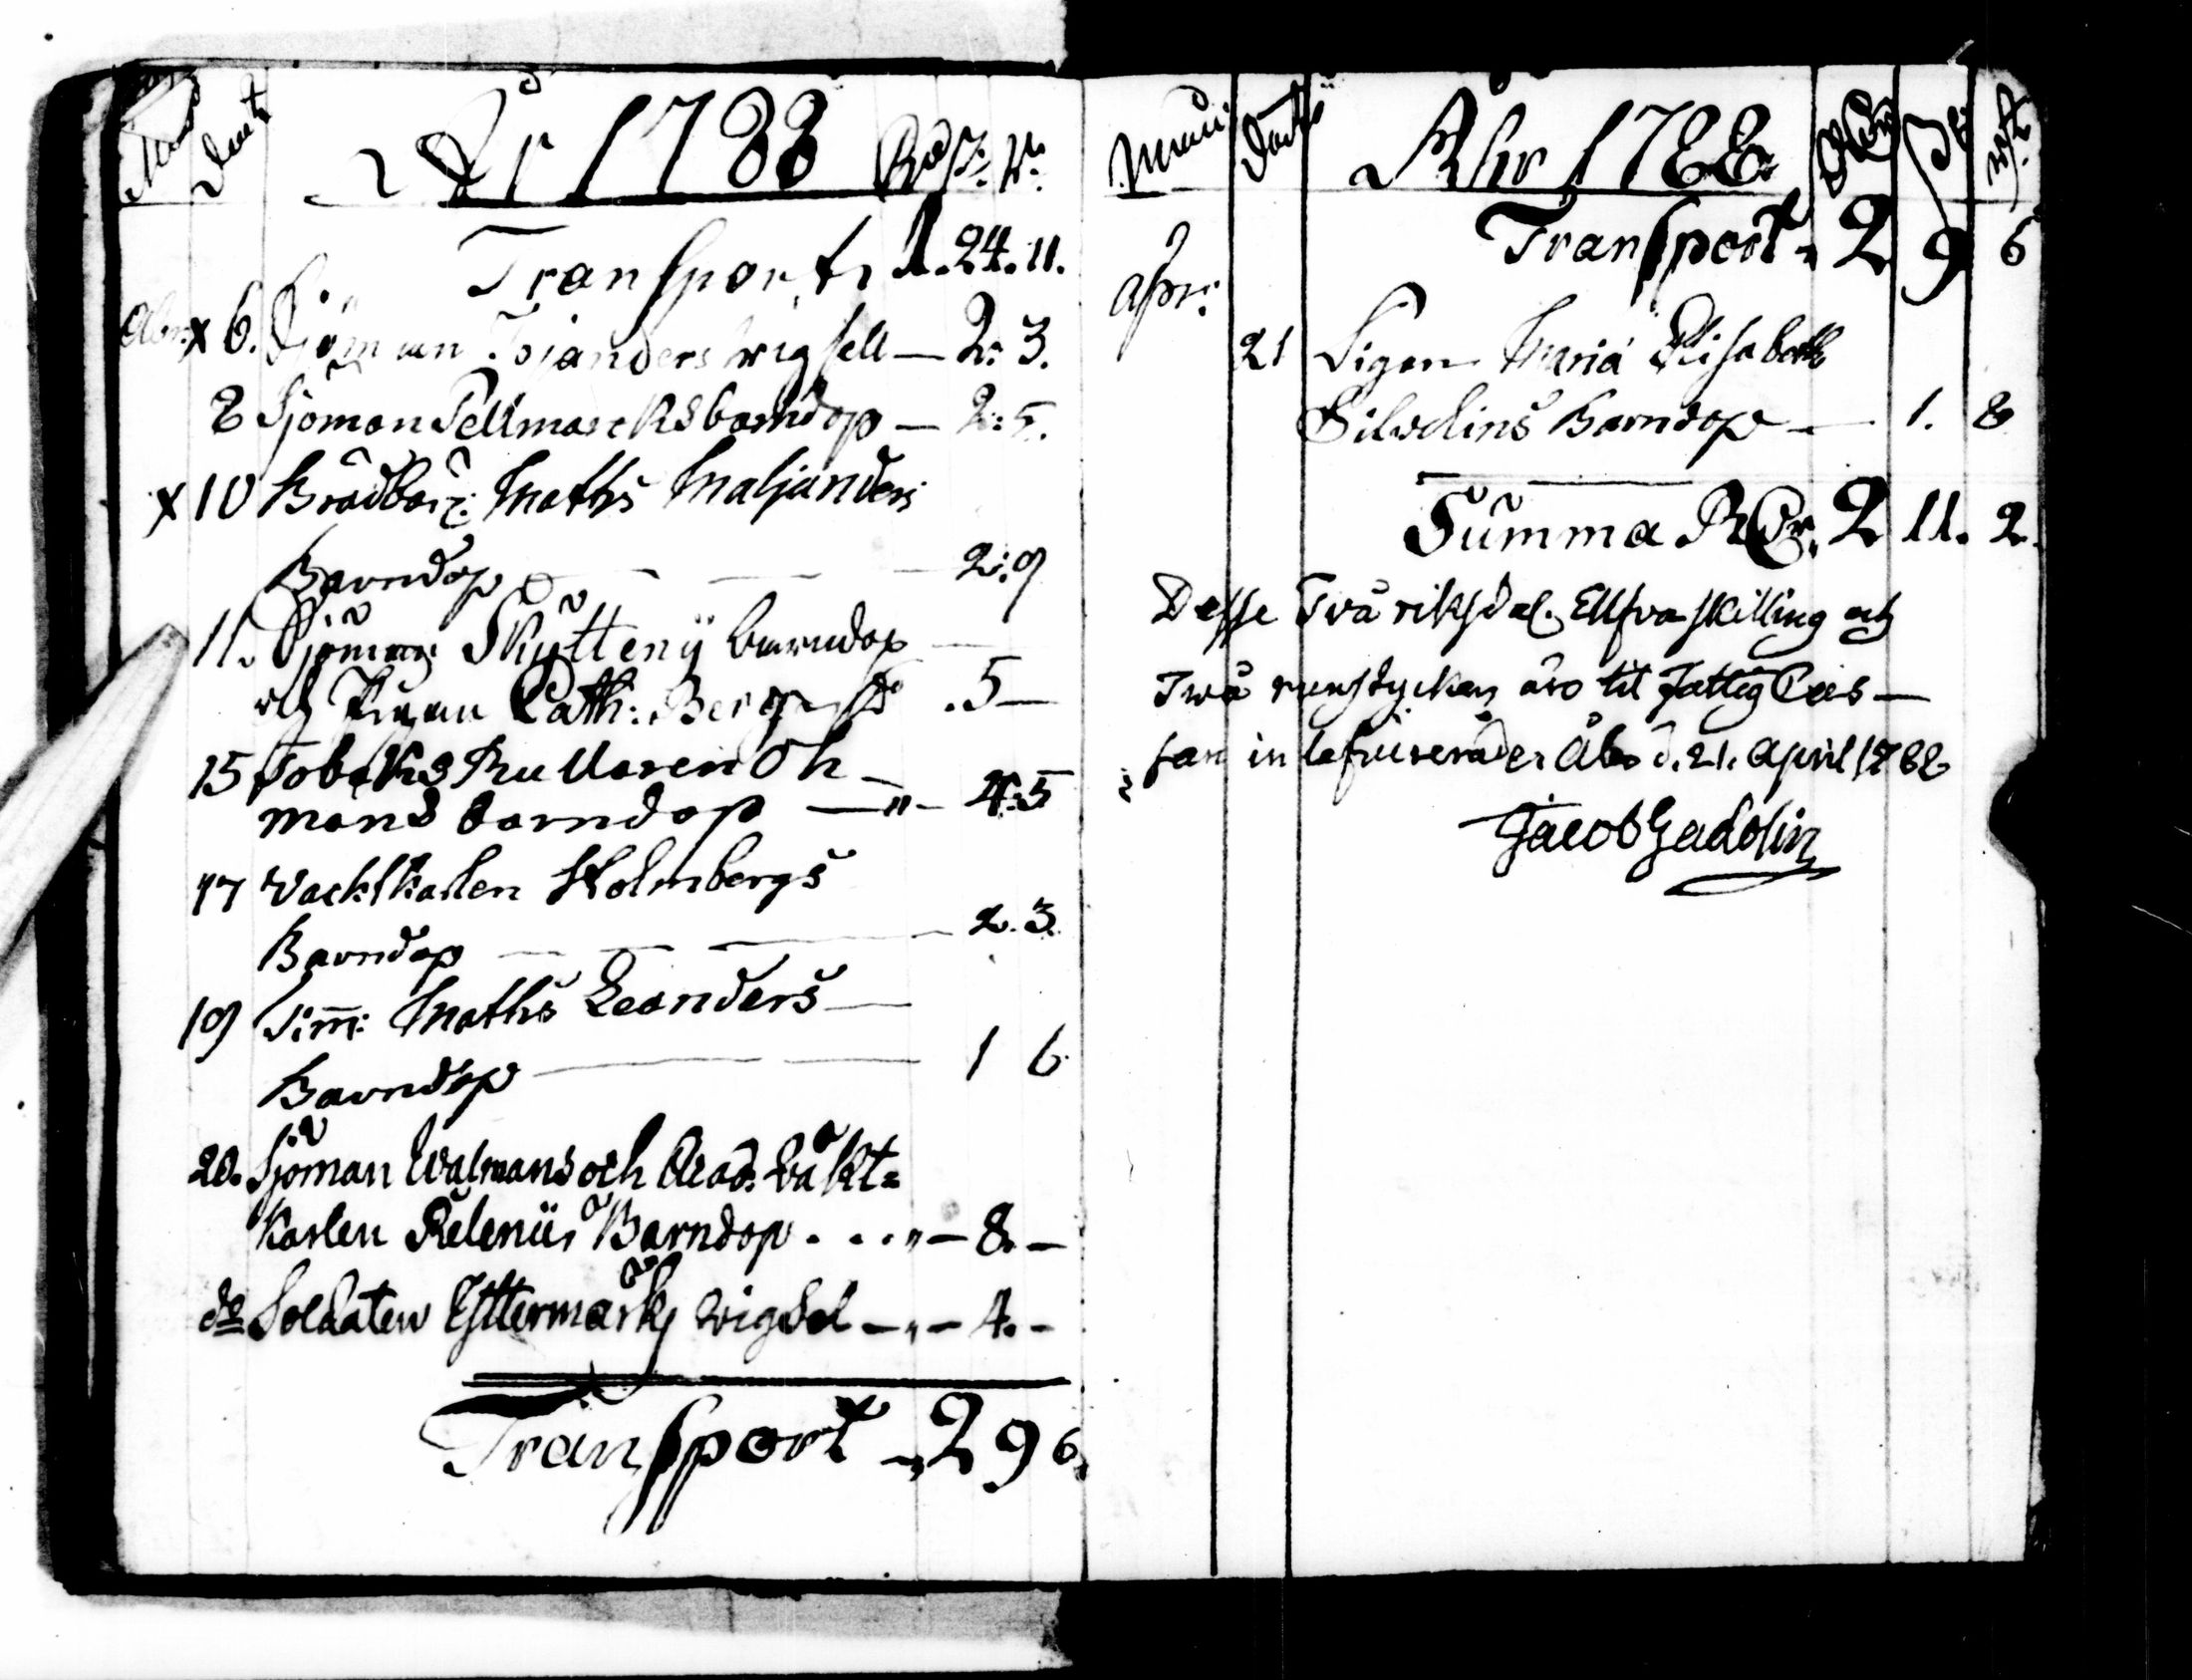 År 1788 Rd ß: r:
Transport, 1. 24. 11.
Apr: x 6. Sjöman Tojanders wigsell — 2: 3.
8 Sjöman Pellmarcks barndop — 2: 5.
x 10 Brädbär: Matts Maljanders
Barndop — — — 2: 9
11. Sjöman Skytteny barndop —
och Pigan Cath: Berg . 5 —
15 Tobaks Rullaren Öh
mans barndop — " — 4: 5
17 Vacktkarlen Holmbergs
Barndop — — — 2. 3.
19 Tim: Matths Leanders —
Barndop — — 1 6
20. Sjöman Walmans och Acad: Wäkt=
karlen Relenii Barndop . . . " — 8. —
do Soldaten Estermarks wigsel — " — 4. —
Transport — 2 9 6
Dat
Åhr 1788
Transport 2 9 6
Apr:
21 Pigan Maria Elisabeth
Silvelins Barndop — 1. 8
Summa RDr. 2 11. 2.
Desse Två riksdal. Ellfva skilling och
Twå runstycken äro til Fattig Cas —
san inlefvererade. Åbo d. 21. April 1788
Jacob Gadolin